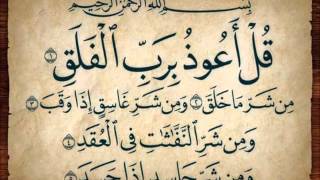 بِسْمِ اللَّهِ الرَّحْمَٰنِ الرَّحِيمِ
قُلْ أَعُوذُ بِرَبِّ ٱلْفَلَقِ ١
مِن شَرِّ مَا خَلَقَ ٢ وَمِن شَرِّ غَاسِقٍ إِذَا وَقَبَ ٣
وَمِن شَرِّ ٱلنَّفَّٰثَٰتِ فِى ٱلْعُقَدِ ٤
وَمِن شَرِّ حَاسِدٍ إِذَا حَسَدَ ٥